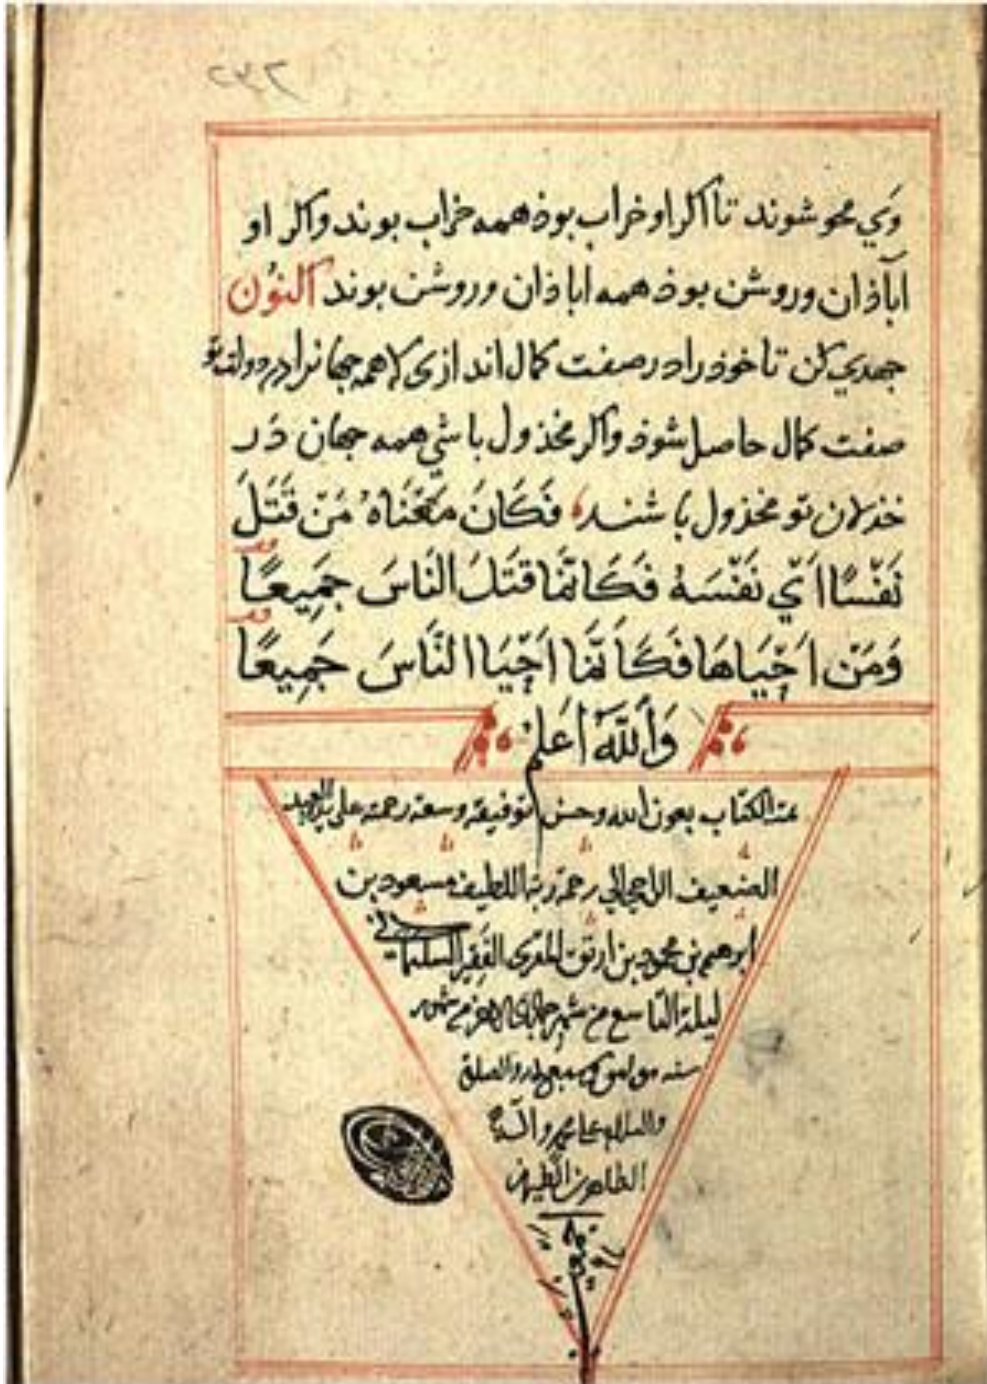 ٢٣٢
وَي محو شوند تا اكر او خراب بوذ همه خراب بوند واكر او
اباذان وروشن بوذ همه اباذان وروشن بوند اكنون
جهدي كن تا خوذ را در صفت كمال اندازى كه همه جهانرا در دولت تو
صفت كمال حاصل شوذ واكر مخذول باشي همه جهان دَر
خذلان تو مخذول باشند فَكَانَ مَعْنَاهُ مَنْ قَتَلَ
نَفْسًا اَيْ نَفْسَهُ فَكَانَّمَا قَتَلَ النَّاسَ جَمِيعًا
وَمَنْ اَحْيَاهَا فَكَاَنَّمَا اَحْيَا النَّاسَ جَمِيعًا
وَاللهُ اَعْلَمُ
الكتاب بعون الله وحسن توفيقه وسعة رحمته على يد العبد
الضعيف الراجي الى رحمة ربه اللطيف مسعود بن
ابرهيم بن محمود بن ارتق المقرى الفقير السلماني
ليلة التاسع من شهر جمادى شهور
سنه والصلوة
والسلام على محمد وآله
الطاهرين